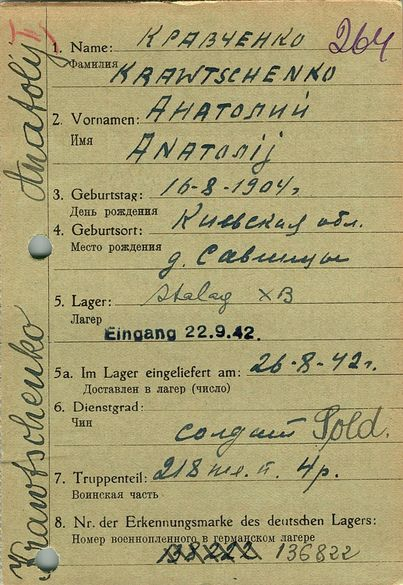 1. Name: КРАВЧЕНКО 264
Фамилия KRAWTSCHENKO
2. Vornamen: АНАТОЛИЙ
Имя ANATOLIJ
3. Geburtstag: 16-8-1904 г.
День рождения
4. Geburtsort: Киевская обл.
Место рождения д. Савинцы
5. Lager: Stalag XB
Лагер
Eingang 22.9.42.
5a. Im Lager eingeliefert am: 26-8-42 г.
Доставлен в лагер (число)
6. Dienstgrad:
Чин солдат Sold.
7. Truppenteil: 218 п. 4 р.
Воинская часть
8. Nr. der Erkennungsmarke des deutschen Lagers:
Номер военнопленного в германском лагере
138222 136822
Krawtschenko Anatolij